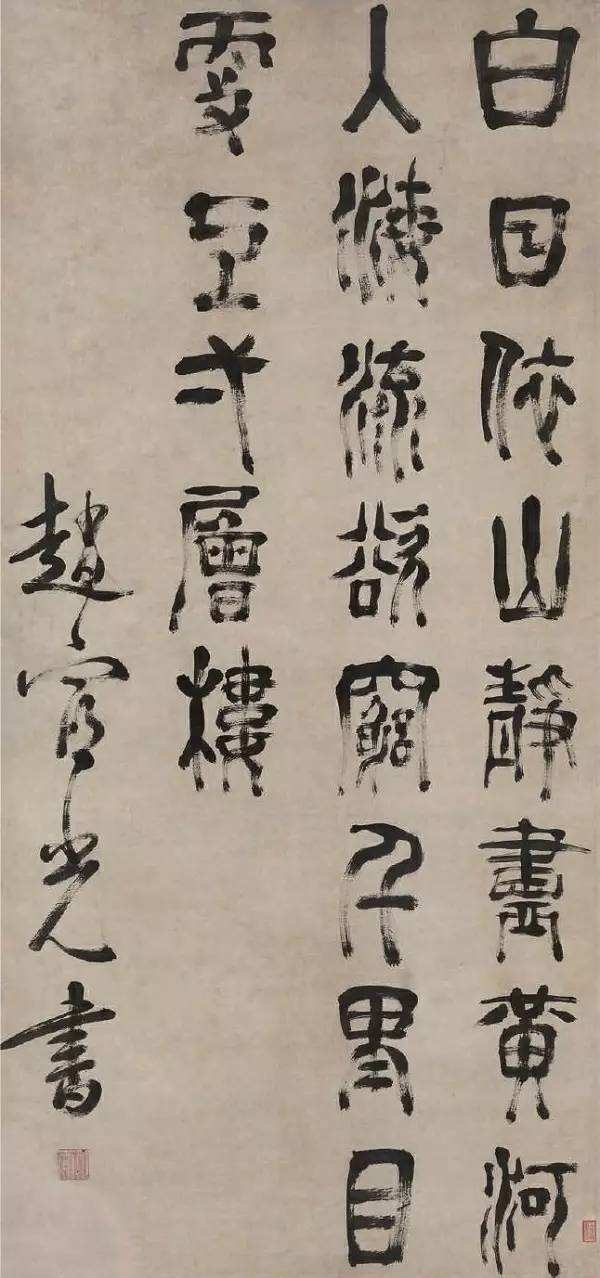 白日依山靜盡黃河
入海流欲窮千里目
更上弌層樓
趙宧光書